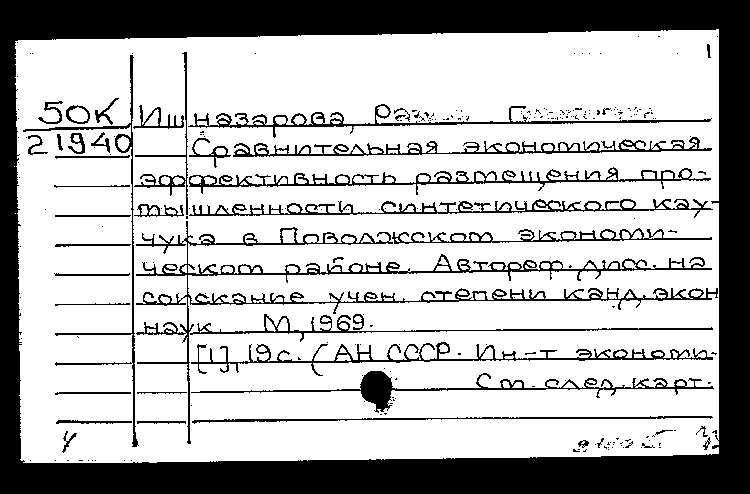 1
50К Ишназарова,
21940 Сравнительная экономическая
эффективность размещения про-
мышленности синтетического кау-
чука в Поволжском экономи-
ческом районе. Автореф. дисс. на
соискание учен. степени канд. экон
наук. М., 1969.
[1], 19 с. (АН СССР. Ин-т экономи-
См. след. карт.